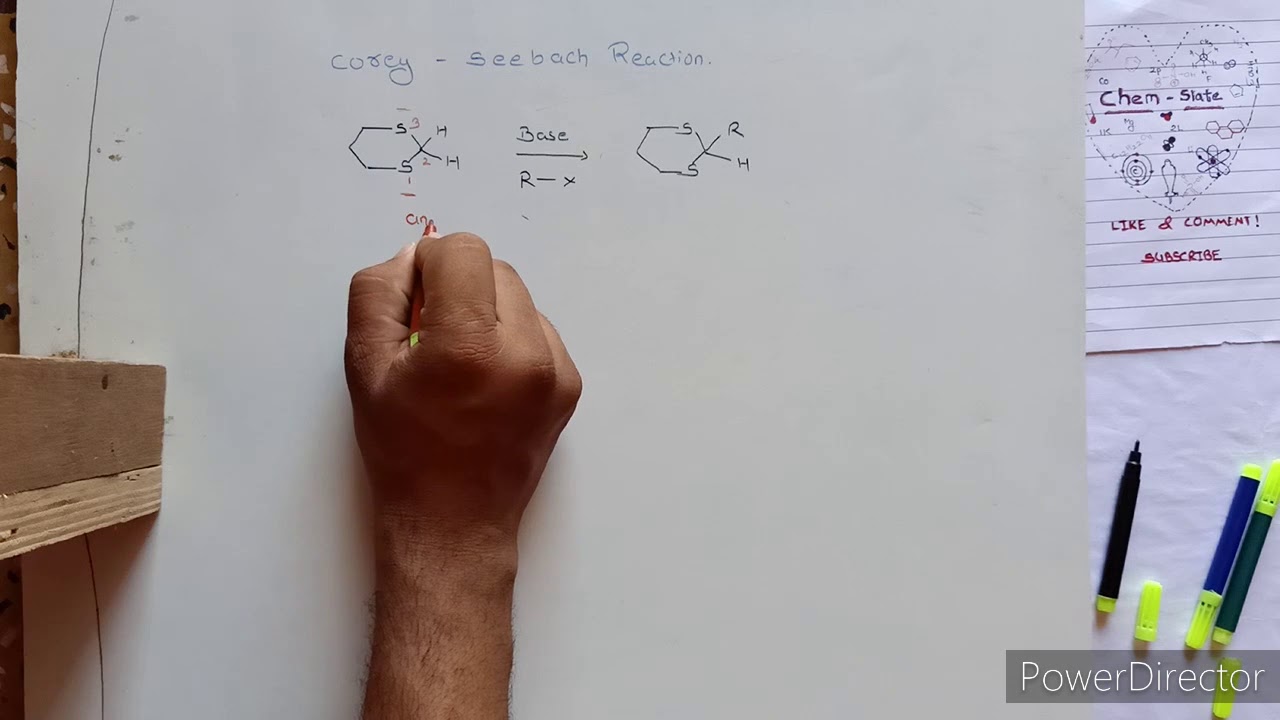 Corey - Seebach Reaction.
S 3 H
Base
S R
2 H
S
R - x
S H
1
an
Chem - Slate
LIKE & COMMENT!
SUBSCRIBE
PowerDirector